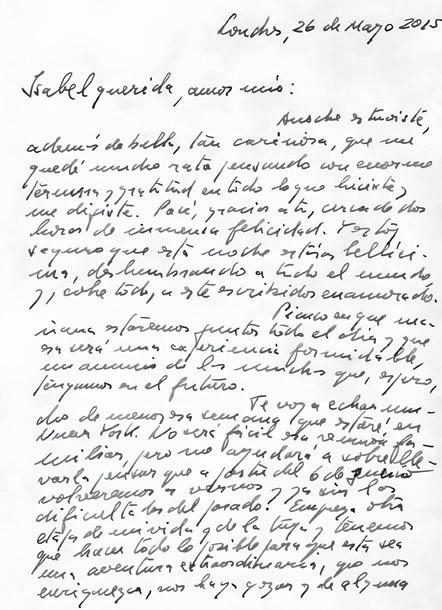 Londres, 26 de Mayo 2015
Isabel querida, amor mío:
Anoche estuviste,
además de bella, tan cariñosa, que me
quedé mucho rato pensando con enorme
ternura y gratitud en todo lo que hiciste y
me dijiste. Pasé, gracias a ti, cerca de dos
horas de inmensa felicidad. Y estoy
seguro que esta noche estarás bellísi-
ma, deslumbrando a todo el mundo
y, sobre todo, a este escribidor enamorado.
Pienso en que ma-
ñana estaremos juntos todo el día y que
esa será una experiencia formidable,
un anuncio de los muchos que, espero,
tengamos en el futuro.
Te voy a echar mu-
cho de menos esa semana que estaré en
Nueva York. No será fácil esa reunión fa-
miliar, pero me ayudará a sobrelle-
varla pensar que a partir del 6 de junio
volveremos a vernos y ya sin las
dificultades del pasado. Empieza otra
etapa de mi vida y de la tuya y tenemos
que hacer todo lo posible para que esta sea
una aventura extraordinaria, que nos
enriquezca, nos haga gozar y de alguna